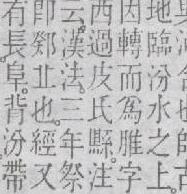 地臨汾水之上
因轉而為脽字
西過皮氏縣。注
云。漢法。三年祭
即鄈北也。經又
有長阜。背汾帶